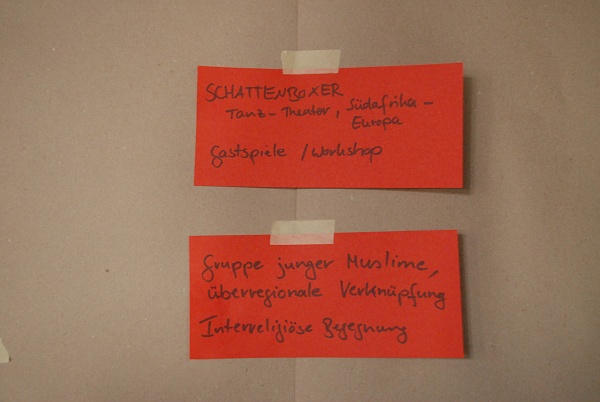 SCHATTENBOXER
Tanz-Theater, Südafrika-
Europa
Gastspiele / Workshop
Gruppe junger Muslime,
überregionale Verknüpfung
Interreligiöse Begegnung